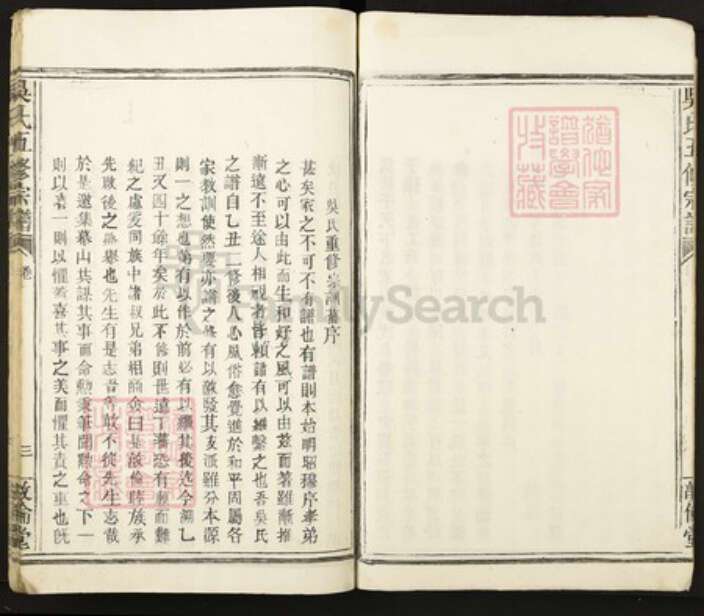 吳氏重修宗譜舊序
甚矣家之不可不有譜也有譜則本始明昭穆序孝弟
之心可以由此而生和好之風可以由茲而著雖漸推
漸遠不至途人相視者皆賴譜有以維繫之也吾吳氏
之譜自乙丑二修後人心風俗愈覺進於和平周屬各
家教訓使然要亦譜之修有以啟發其支派雖分本源
則一之想也第有以作於前必有以繼其後迄今溯乙
丑又四十餘年矣於此不修則世遠丁蕃恐有剩而難
紀之處爰同族中諸叔兄弟相商僉曰是敦倫睦族承
先啟後之舉也先生有是志吾等敢不從先生志哉
於是遂集墓山共謀其事而命勲秉筆聞黙命之下一
則以喜一則以懼喜其事之美而懼其責之重也旣
吳氏五修宗譜
卷
三
敦倫堂
FamilySearch
吳氏五修宗譜
敦倫堂